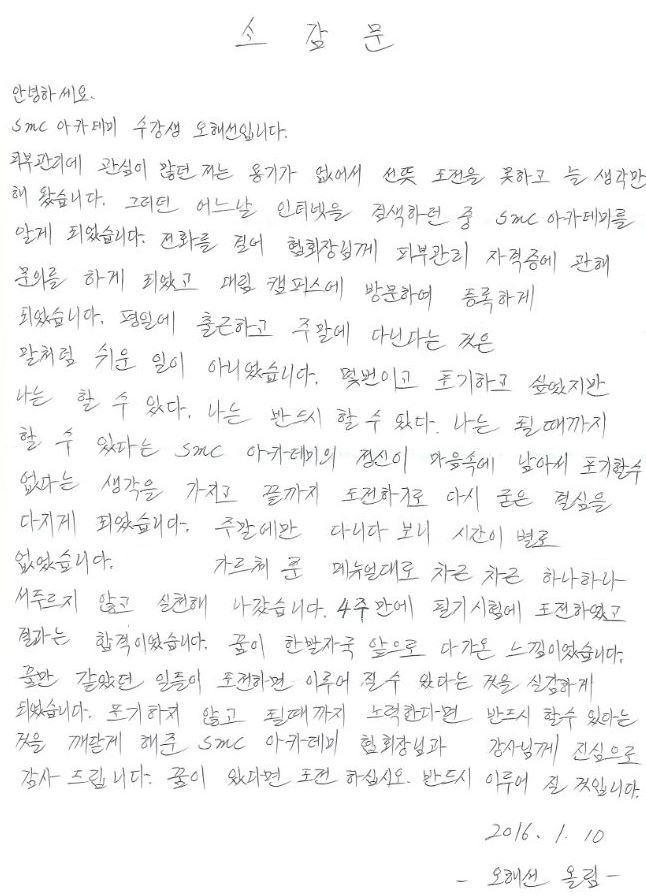 소 감 문
안녕하세요.
smc 아카데미 수강생 오해선입니다.
피부관리에 관심이 많던 저는 용기가 없어서 선뜻 도전을 못하고 늘 생각만
해 왔습니다. 그러던 어느날 인터넷을 검색하던 중 smc 아카데미를
알게 되었습니다. 전화를 걸어 협회장님께 피부관리 자격증에 관해
문의를 하게 되었고 대림 캠퍼스에 방문하여 등록하게
되었습니다. 평일에 출근하고 주말에 다닌다는 것은
말처럼 쉬운 일이 아니었습니다. 몇번이고 포기하고 싶었지만
나는 할 수 있다. 나는 반드시 할 수 있다. 나는 될때까지
할 수 있다는 smc 아카데미의 정신이 마음속에 남아서 포기할수
없다는 생각을 가지고 끝까지 도전하기로 다시 굳은 결심을
다지게 되었습니다. 주말에만 다니다 보니 시간이 별로
없었습니다. 가르쳐 준 메뉴얼대로 차근 차근 하나하나
서두르지 않고 실천해 나갔습니다. 4주만에 필기시험에 도전하였고
결과는 합격이었습니다. 꿈이 한발자국 앞으로 다가온 느낌이었습니다.
꿈만 같았던 일들이 도전하면 이루어 질수 있다는 것을 실감하게
되었습니다. 포기하지 않고 될때까지 노력한다면 반드시 할수 있다는
것을 깨닫게 해준 smc 아카데미 협회장님과 강사님께 진심으로
감사 드립니다. 꿈이 있다면 도전 하십시오. 반드시 이루어 질 것입니다.
2016. 1. 10
- 오해선 올림 -